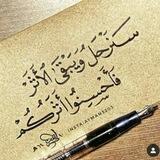 سنرحل ويبقى الأثر
فأحسنوا أثركم
INSTA:AYMAN8505